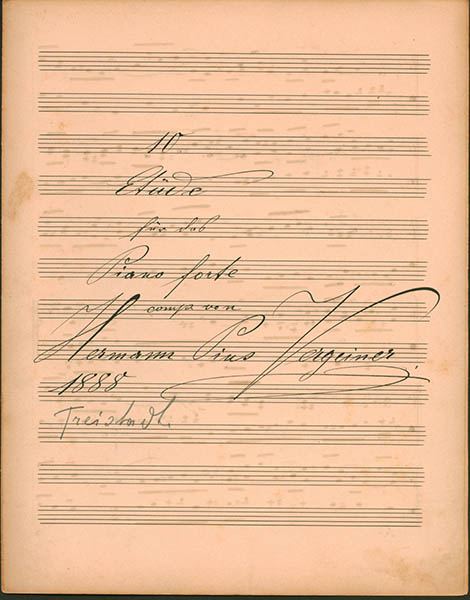 10.
Etüde
für das
Piano forte
comp. von
Hermann Pius Vergeiner.
1888
Freistadt.